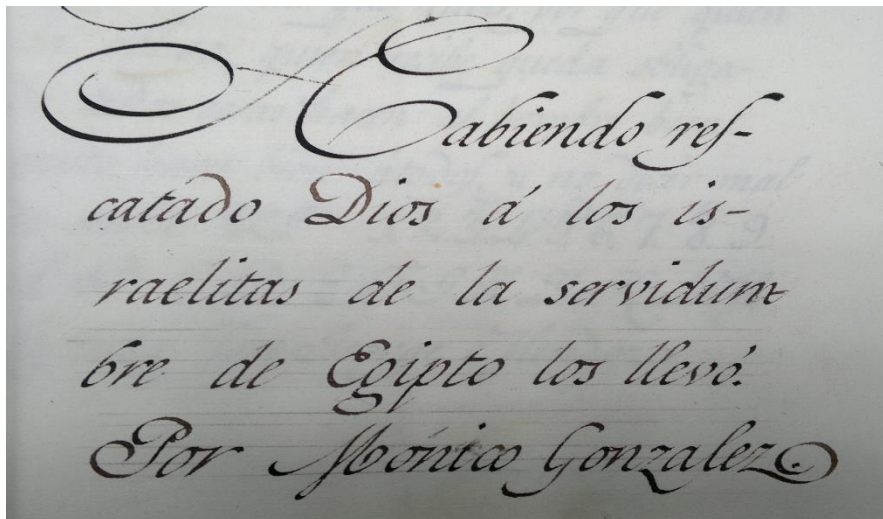 Habiendo res-
catado Dios á los is-
raelitas de la servidum
bre de Egipto los llevó.
Por Mónico Gonzalez.